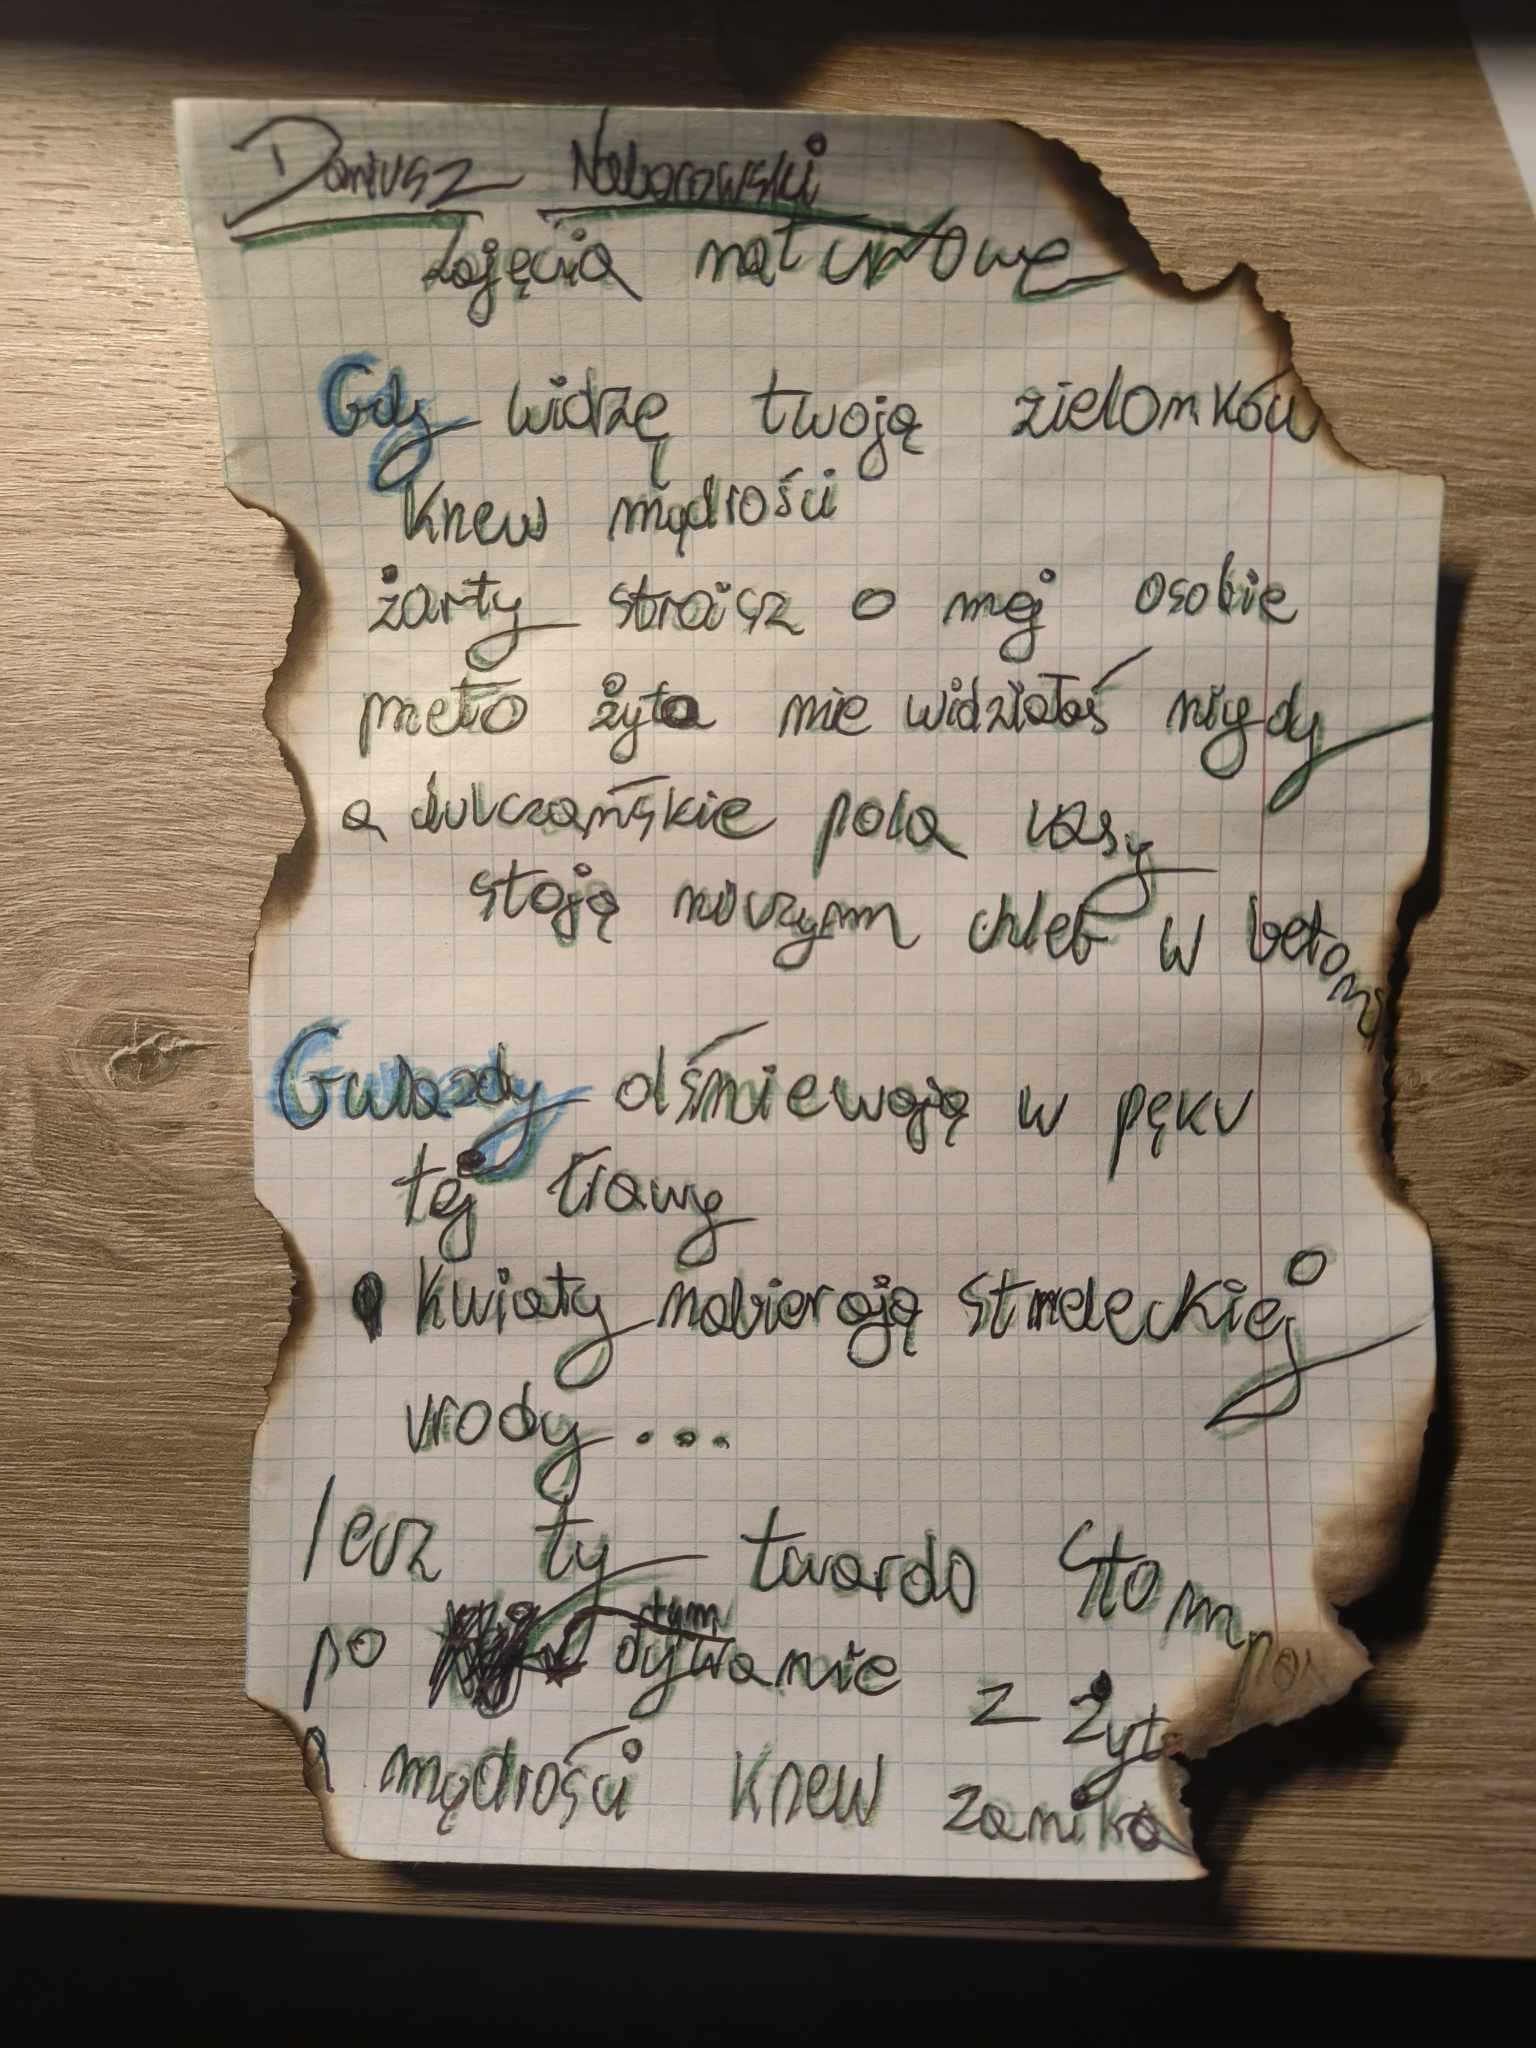 Dariusz Naborowski
zajęcia maturowe
Gdy widzę twoją zielonków
Knew mądrości
żarty stroisz o mej osobie
meto żyta nie widziałaś nigdy
a dulczańskie pola rzęsy
stoją niczym chleb w betoni
Gwiazdy olśniewają w pęku
tej trawy
kwiaty nabierają streleckiej
urody...
lecz ty twardo stom,
po tym dywanie z żyta
a mądrości knew zanika